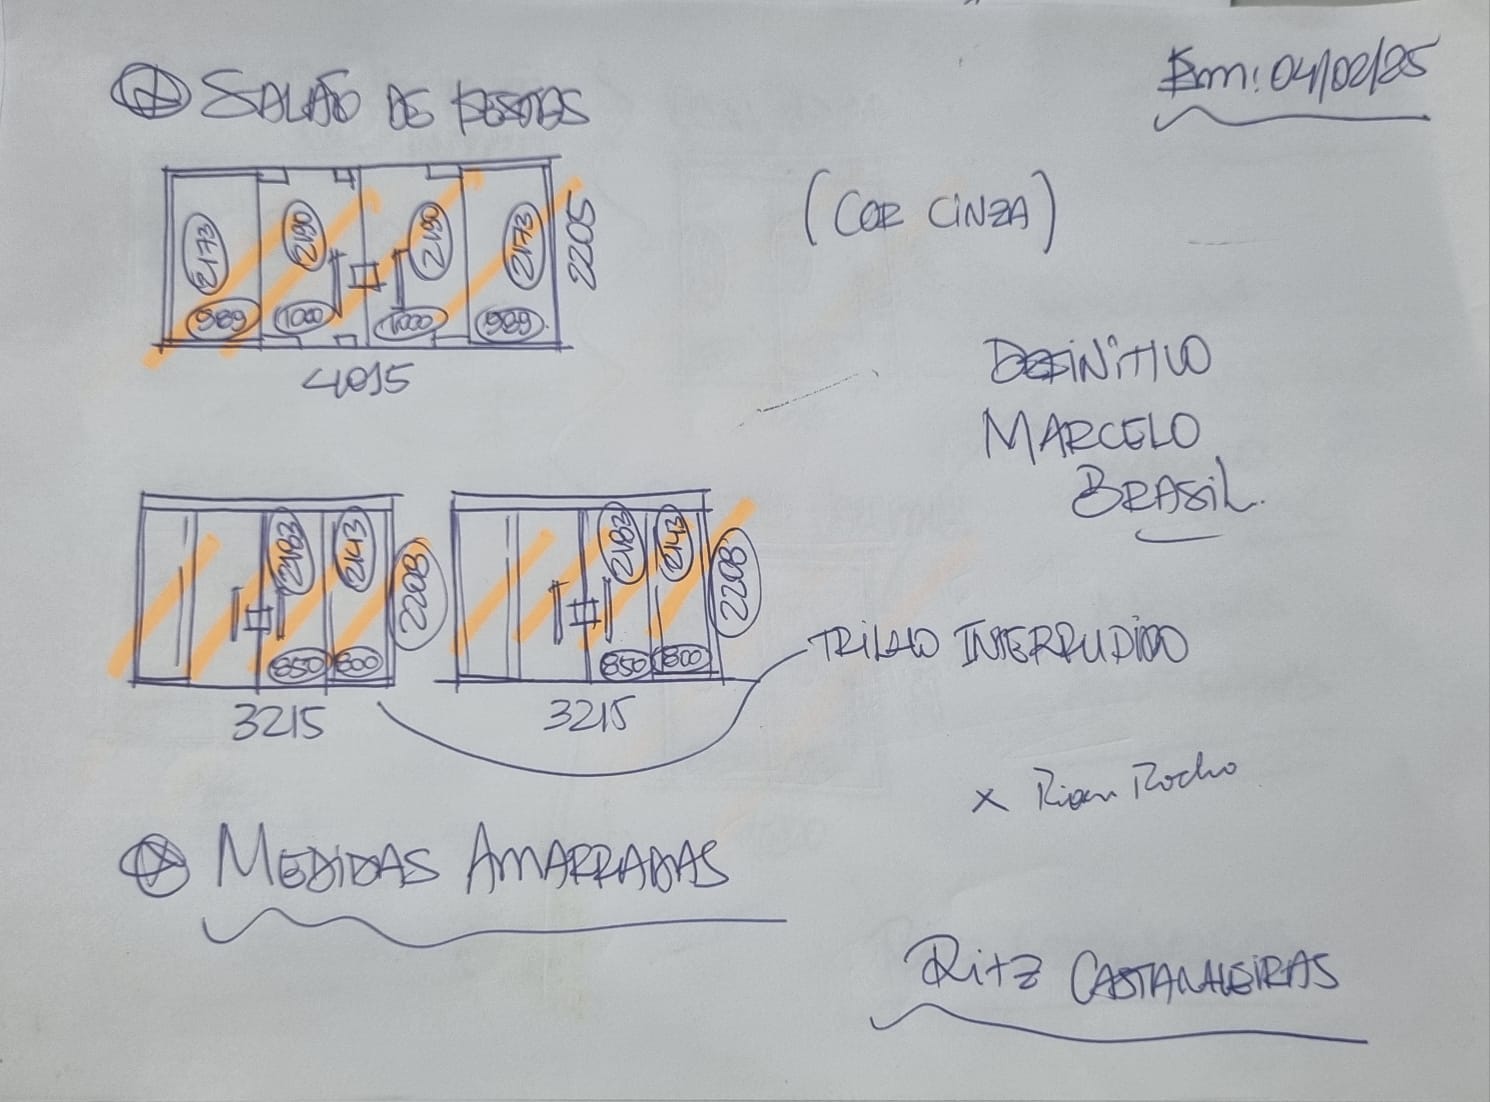 SALÃO DE FESTAS
Em: 04/02/25
(COR CINZA)
2173
2190
2190
2173
2205
989
1000
1000
989
4015
DEFINITIVO
MARCELO
BRASIL.
2183
2143
2208
850
800
3215
2183
2143
2208
850
800
3215
TRILHO INTERRUPIDO
x Rian Rocha
MEDIDAS AMARRADAS
Ritz CASTANHEIRAS